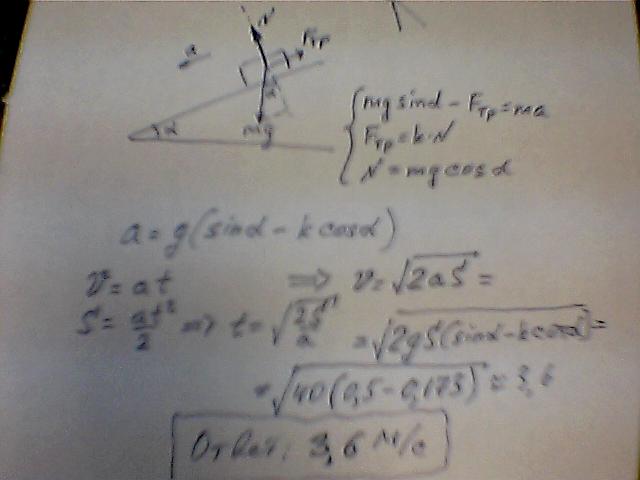 N
a
Fтр
α
α
mg
mg sinα - Fтр = ma
Fтр = k·N
N = mg cosα
a = g(sinα - k cosα)
v = at ⟹ v = √2aS =
S = at²/2 ⟹ t = √2S/a = √2gS(sinα - k cosα) =
= √40(0,5 - 0,173) ≈ 3,6
Ответ: 3,6 м/с